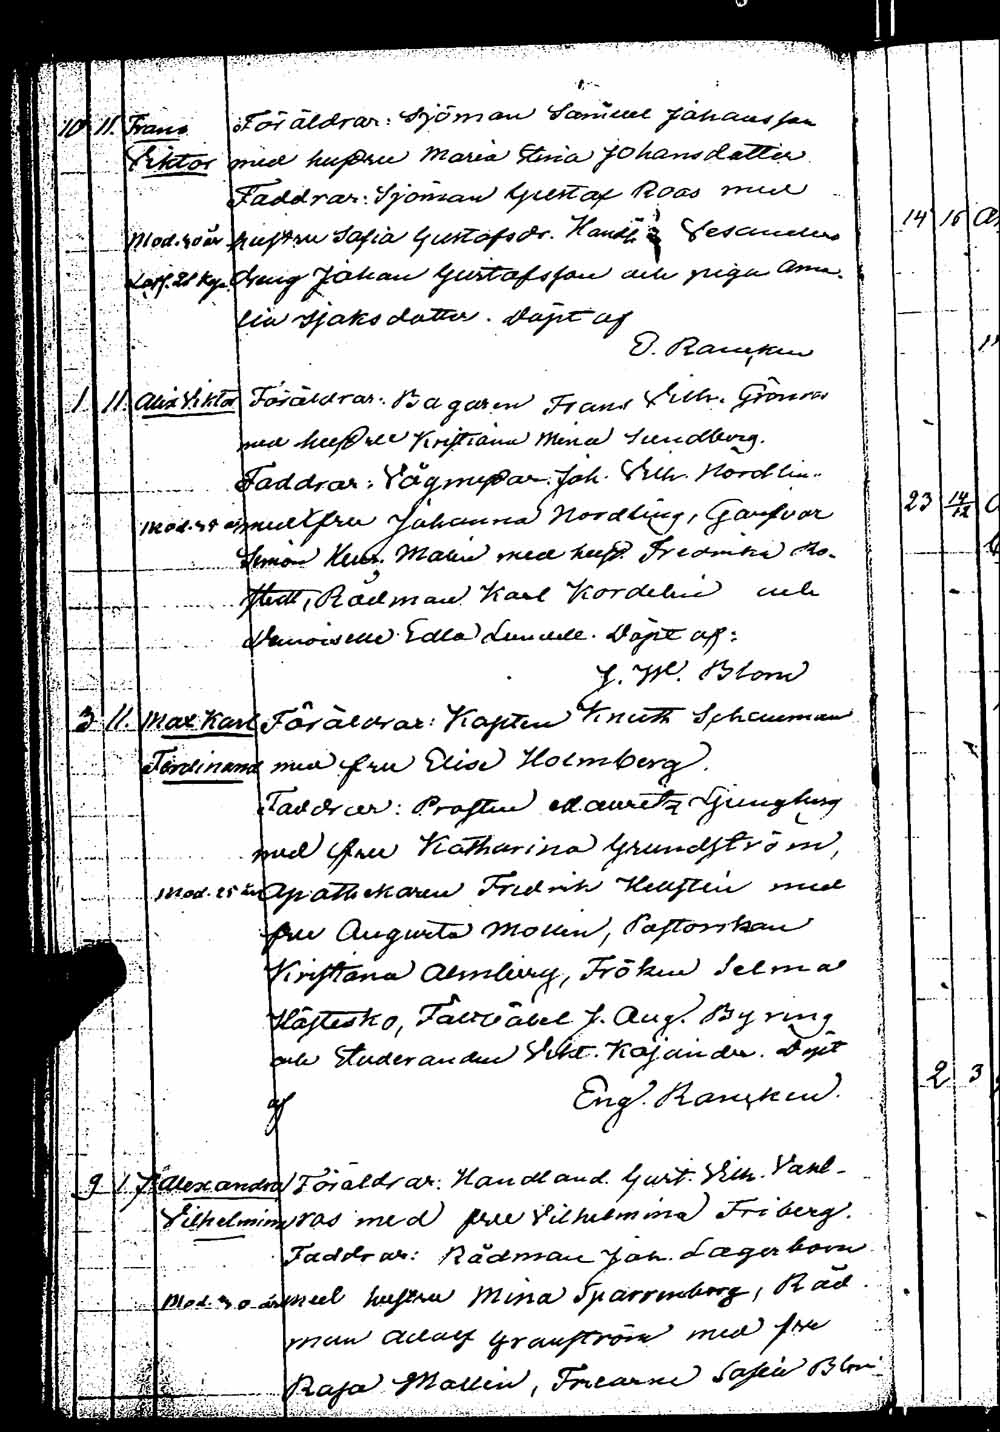 10 11. Frans Föräldrar: Sjöman Samuel Johansson
Viktor med hustru Maria Stina Johansdotter
Faddrar: Sjöman Gustaf Roos med
Mod. 30 år hustru Sofia Gustafsdr. Handl.
dreng Johan Gustafsson och piga Ama-
lia Isaksdotter. Döpt af
E. Rancken
1 11. Alix Viktor Föräldrar: Bagaren Frans Vilh. Grönros
med hustru Kristiana Mina Sundberg.
Faddrar: Vågmästar. Joh. Vilh. Nordlin..
med fru Johanna Nordling, Garfvar
Simon Henr. Malin med hust. Fredrika Ro-
stedt, Rådman Karl Kordelin och
Demoiselle Edla Lundell. Döpt af:
J. W. Blom
3 11. Max Karl Föräldrar: Kapten Knuth Schauman
Ferdinand med fru Elise Holmberg.
Faddrar: Prosten Mauritz Ljungberg
med fru Katharina Grundström,
Mod. 25 år Apothekaren Fredrik Hellsten med
fru Augusta Mollin, Pastorskan
Kristiana Almberg, Fröken Selma
Höjtesko, Fältväbel J. Aug. Byring
och Studeranden Vikt. Kajander. Döpt
af Eng. Rancken.
9 1. Alexandra Föräldrar: Handland. Gust. Vilh. Vahl-
Vilhelmina roos med fru Vilhelmina Friberg.
Faddrar: Rådman Joh. Lagerbom
Mod. 30 år med hustru Mina Sparrenborg, Råd-
man Adolf Granström med fru
Rosa Mollin, Fruarne Sofia Blom
14 16
23 14/12
2 3